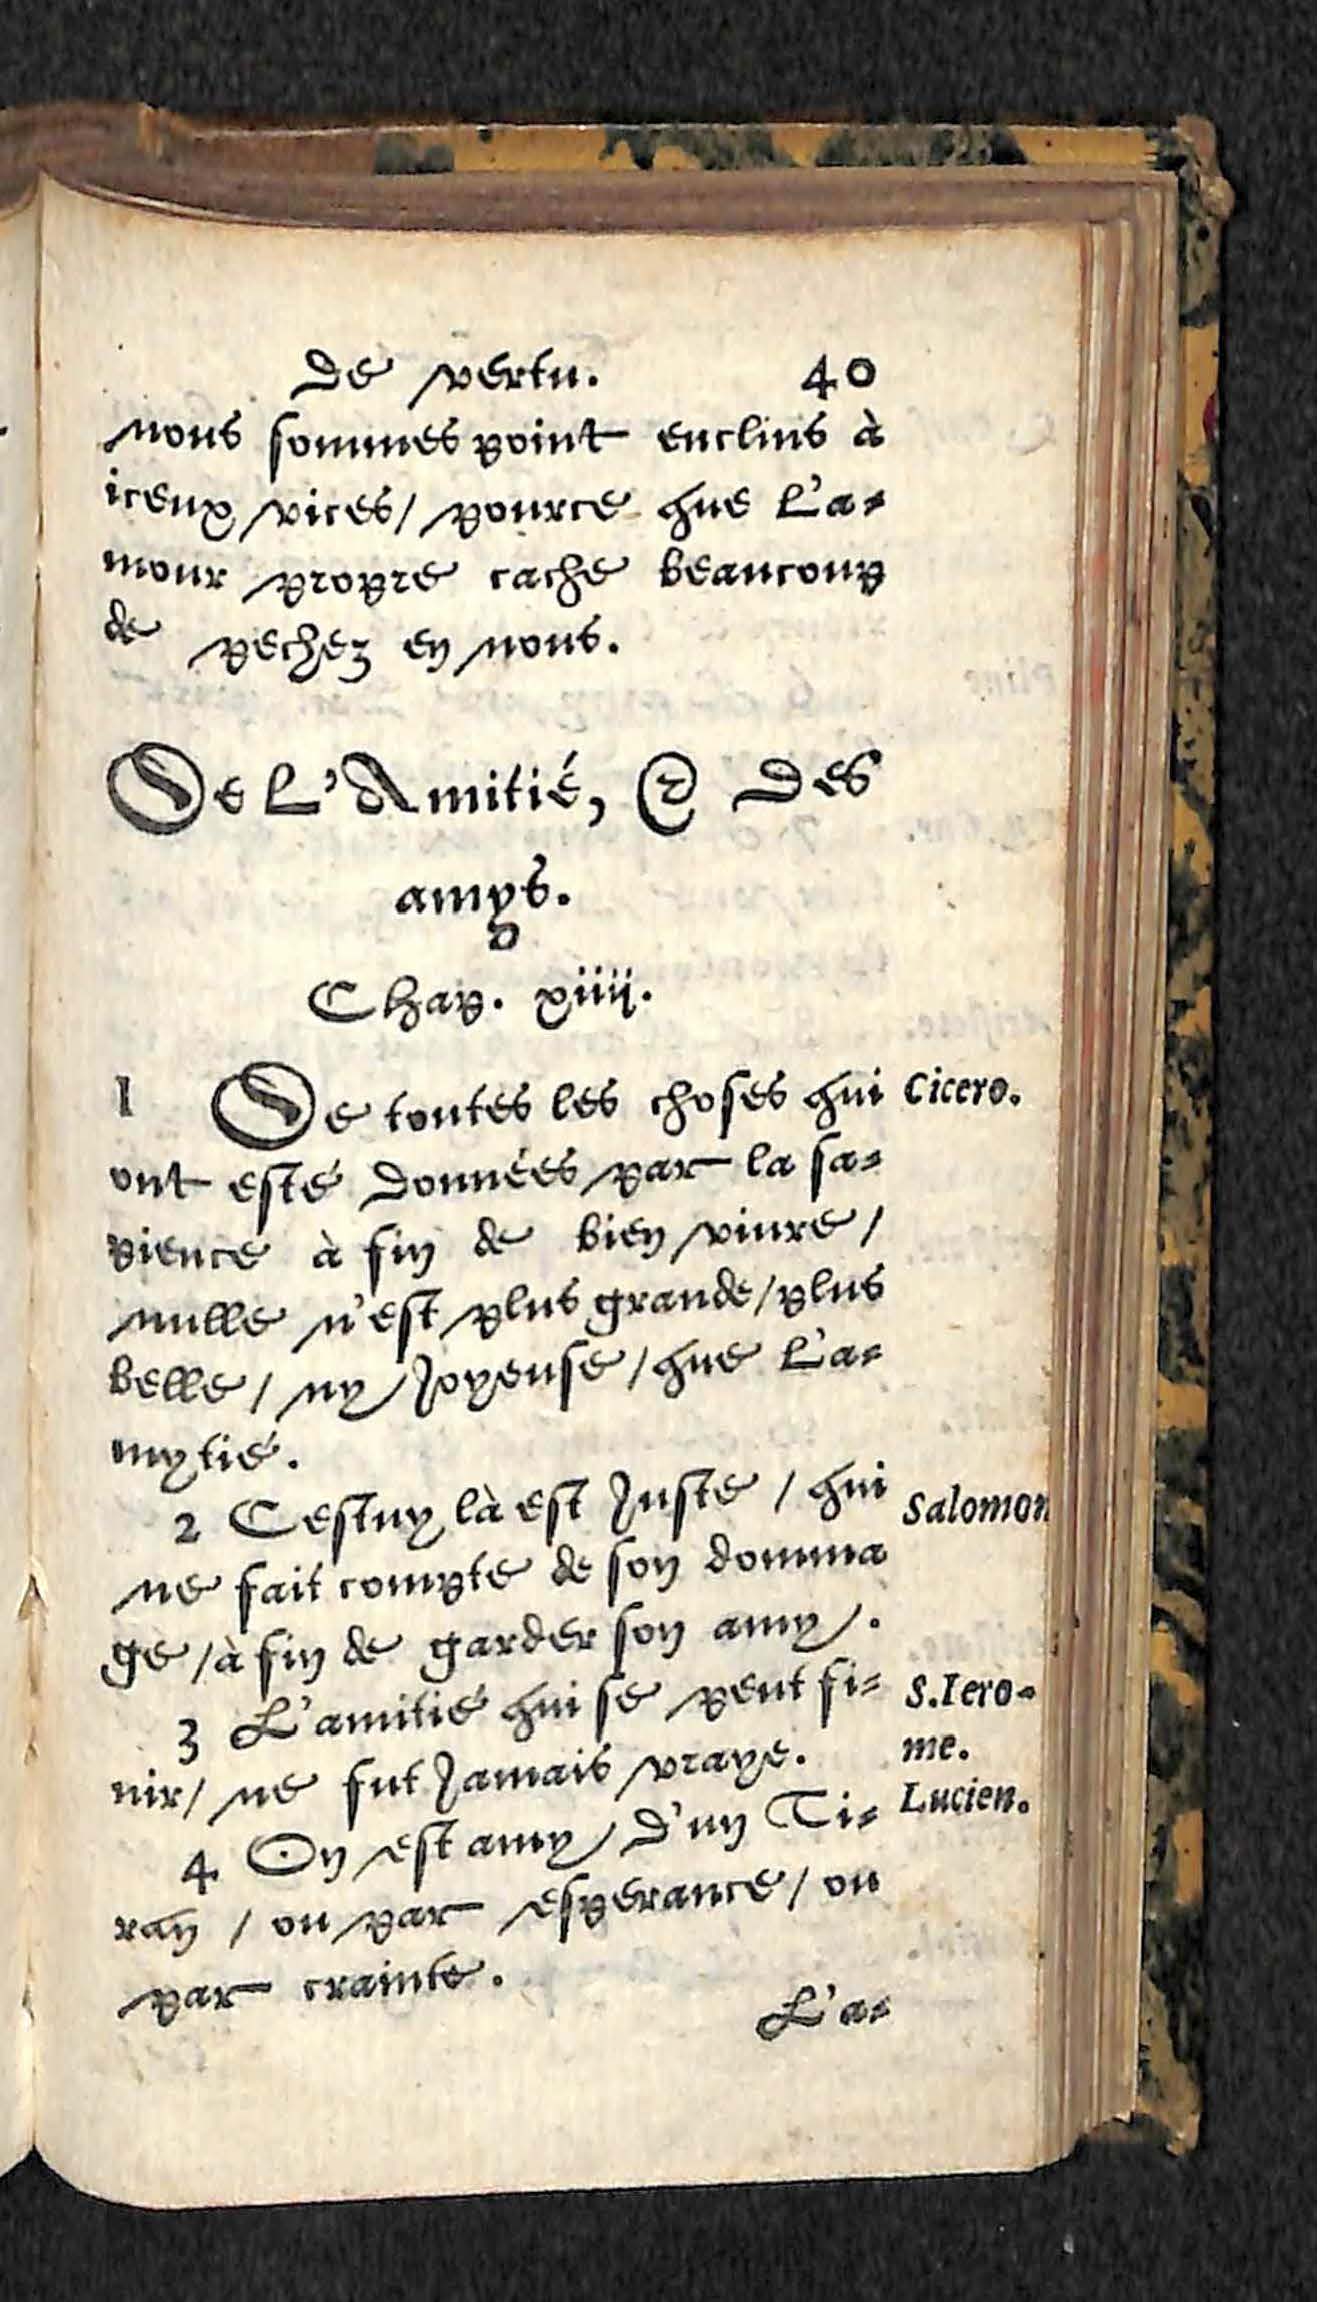 de vertu. 40
nous sommes point enclins à
iceux vices/ pource que l'a-
mour propre cache beaucoup
de pechez en nous.
De l'Amitié, & des
amys.
Chap. xiiij.
1 De toutes les choses qui Cicero.
ont esté données par la sa-
pience à fin de bien viure/
nulle n'est plus grande/ plus
belle/ ny joyeuse/ que l'a-
mytié.
2 Cestuy là est juste/ qui Salomon
ne fait compte de son domma
ge/ à fin de garder son amy.
3 L'amitié qui se peut fi- S.Iero-
nir/ ne fut jamais vraye. me.
4 On est amy d'un Ti- Lucien.
ran/ ou par esperance/ ou
par crainte.
L'a-